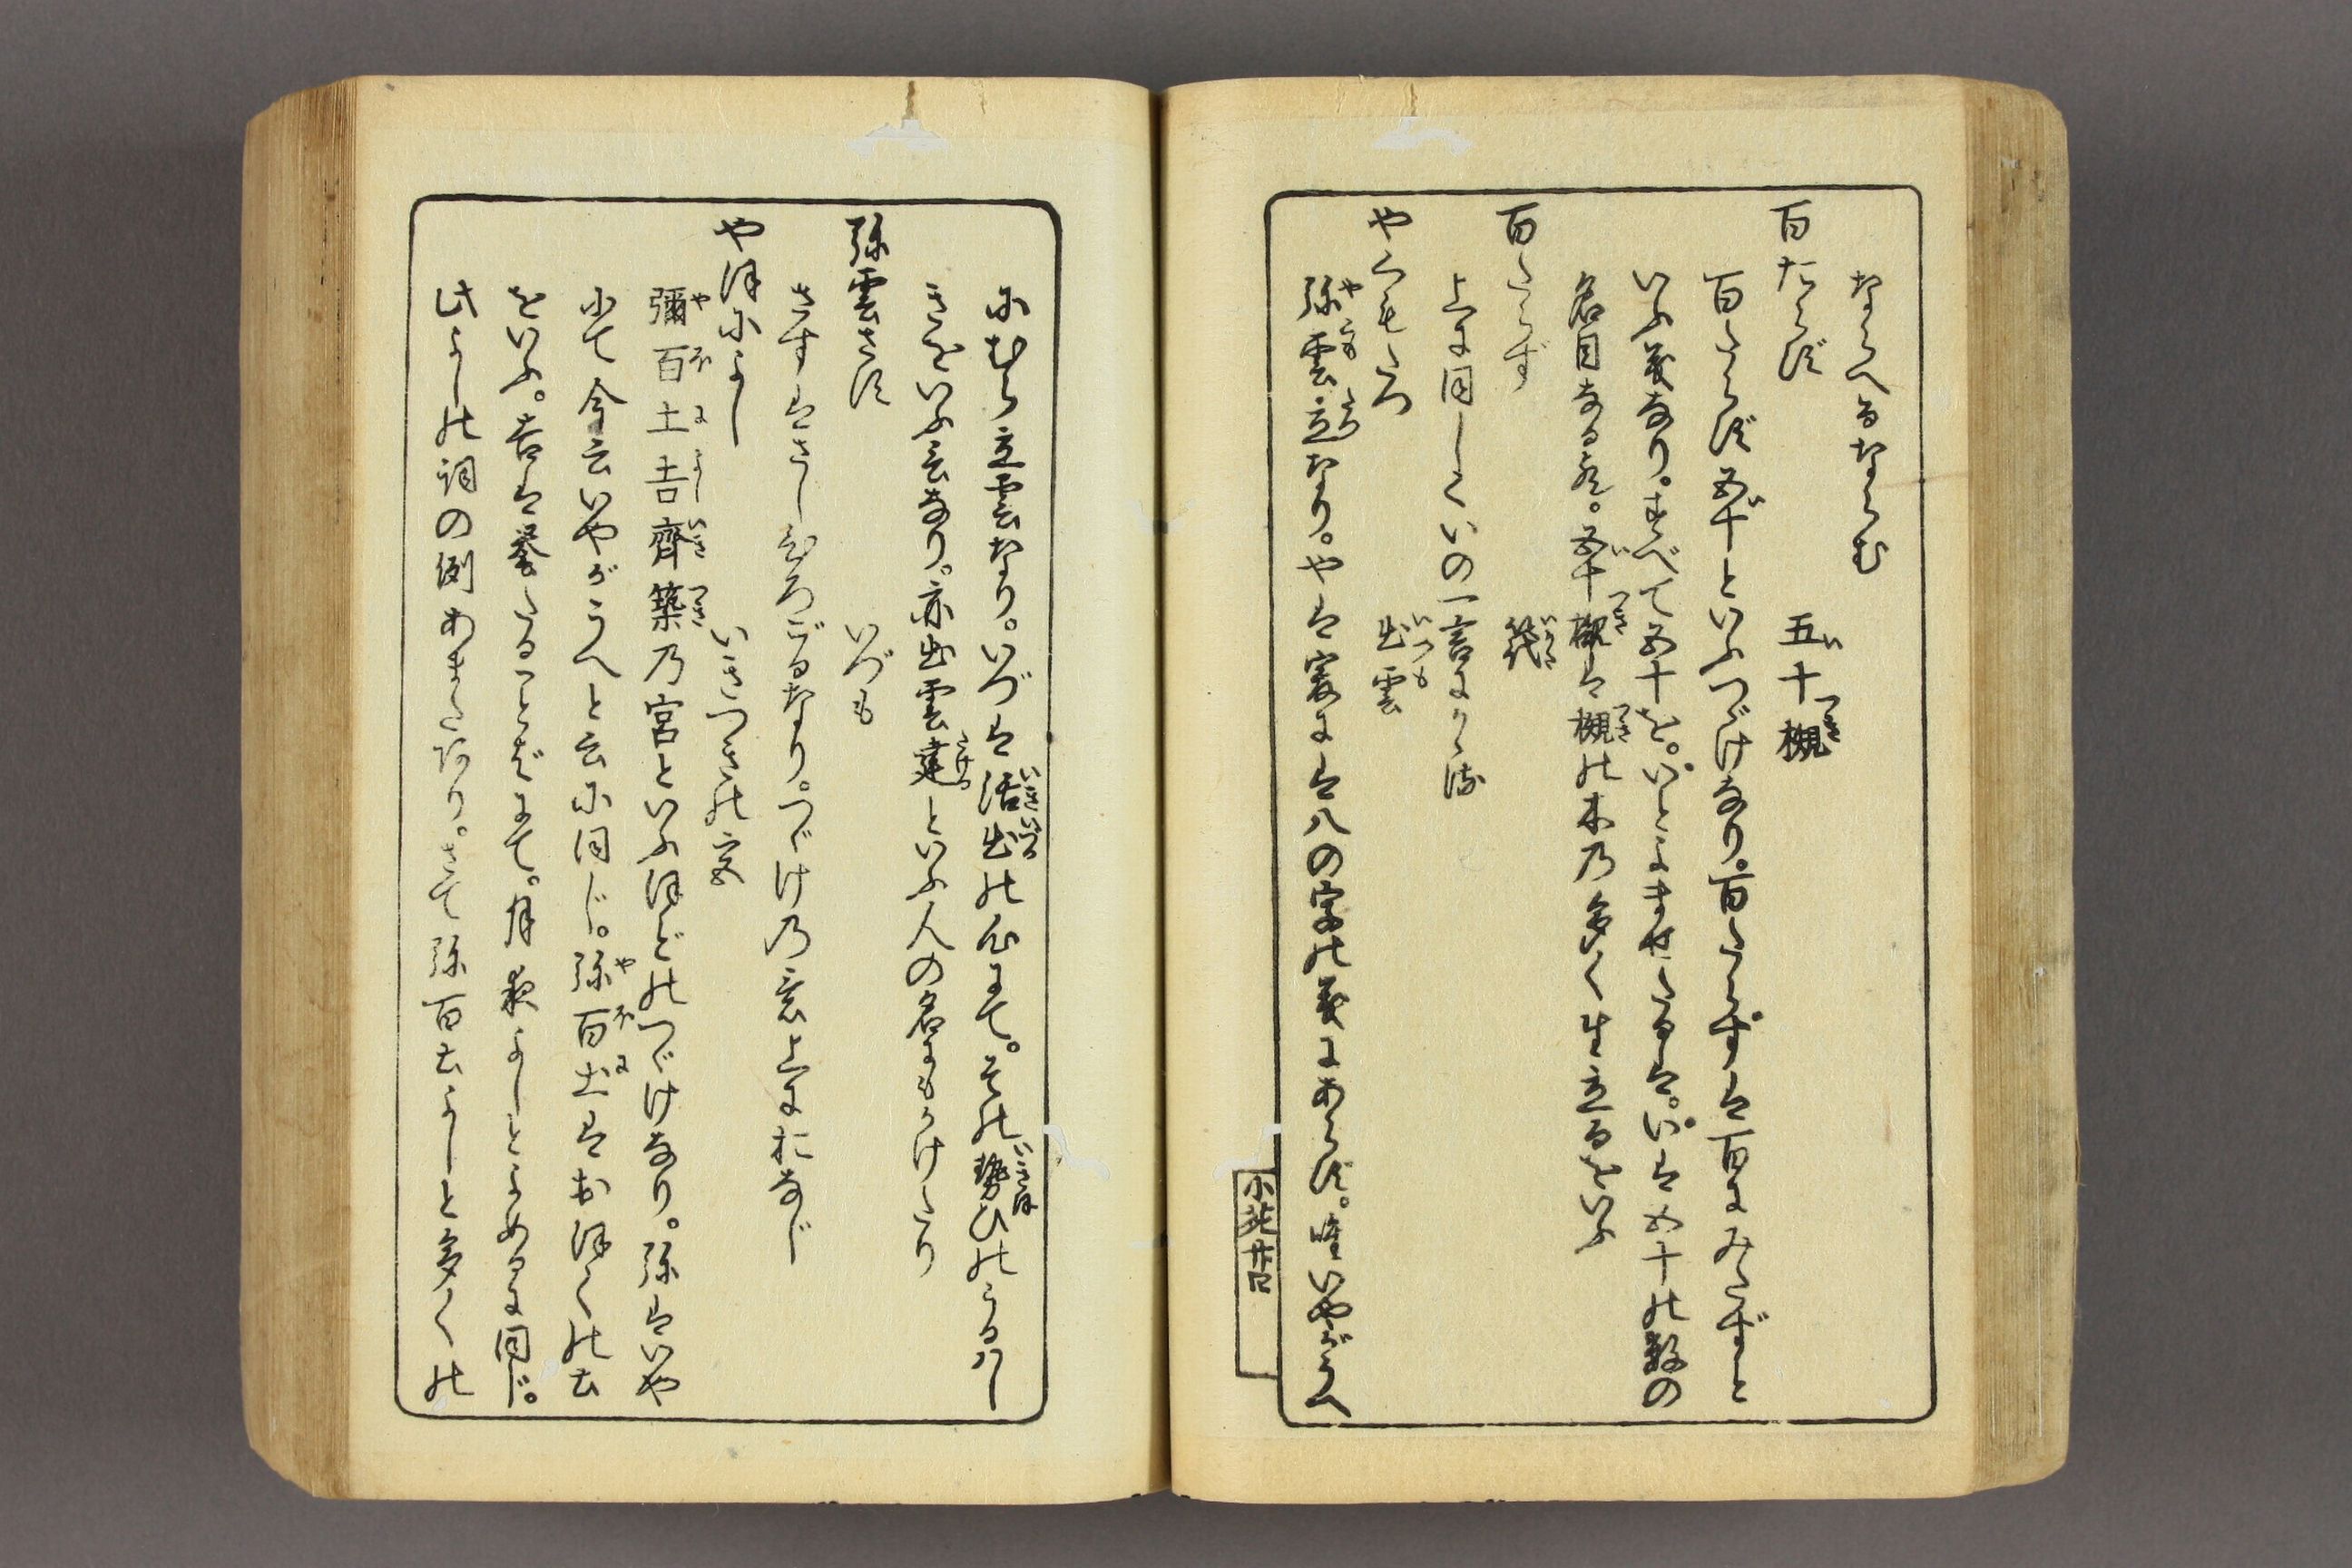 ならへるならむ
百たらず 五十槻
百たらず五十といふつゞけなり。百たらずは百にみたずと
いふ義なり。すべて五十を。いとよませたるは。いは五十の数の
名目なる故。五十槻は槻の木乃多く生立るをいふ
百たらず 筏
上に同しくいの一言にかゝる
やくもたつ 出雲
弥雲立なり。やは実には八の字の義にあらず。唯いやがうへ
にむら立雲なり。いづは活出の心にて。その勢ひのうるはし
きをいふ言なり。亦出雲建といふ人の名にもかけたり
弥雲さす いづも
さすはさしひろごるなり。つゞけ乃意上におなじ
やほによし いきつきの宮
彌百土吉齊築乃宮といふほどのつゞけなり。弥はいや
にて今云いやがうへと云に同じ。弥百土はおほくの土
をいふ。吉は誉たることばにて。月夜よしとよめるに同じ。
此よしの詞の例あまたあり。さて弥百土よしと多くの
小冠 廿四